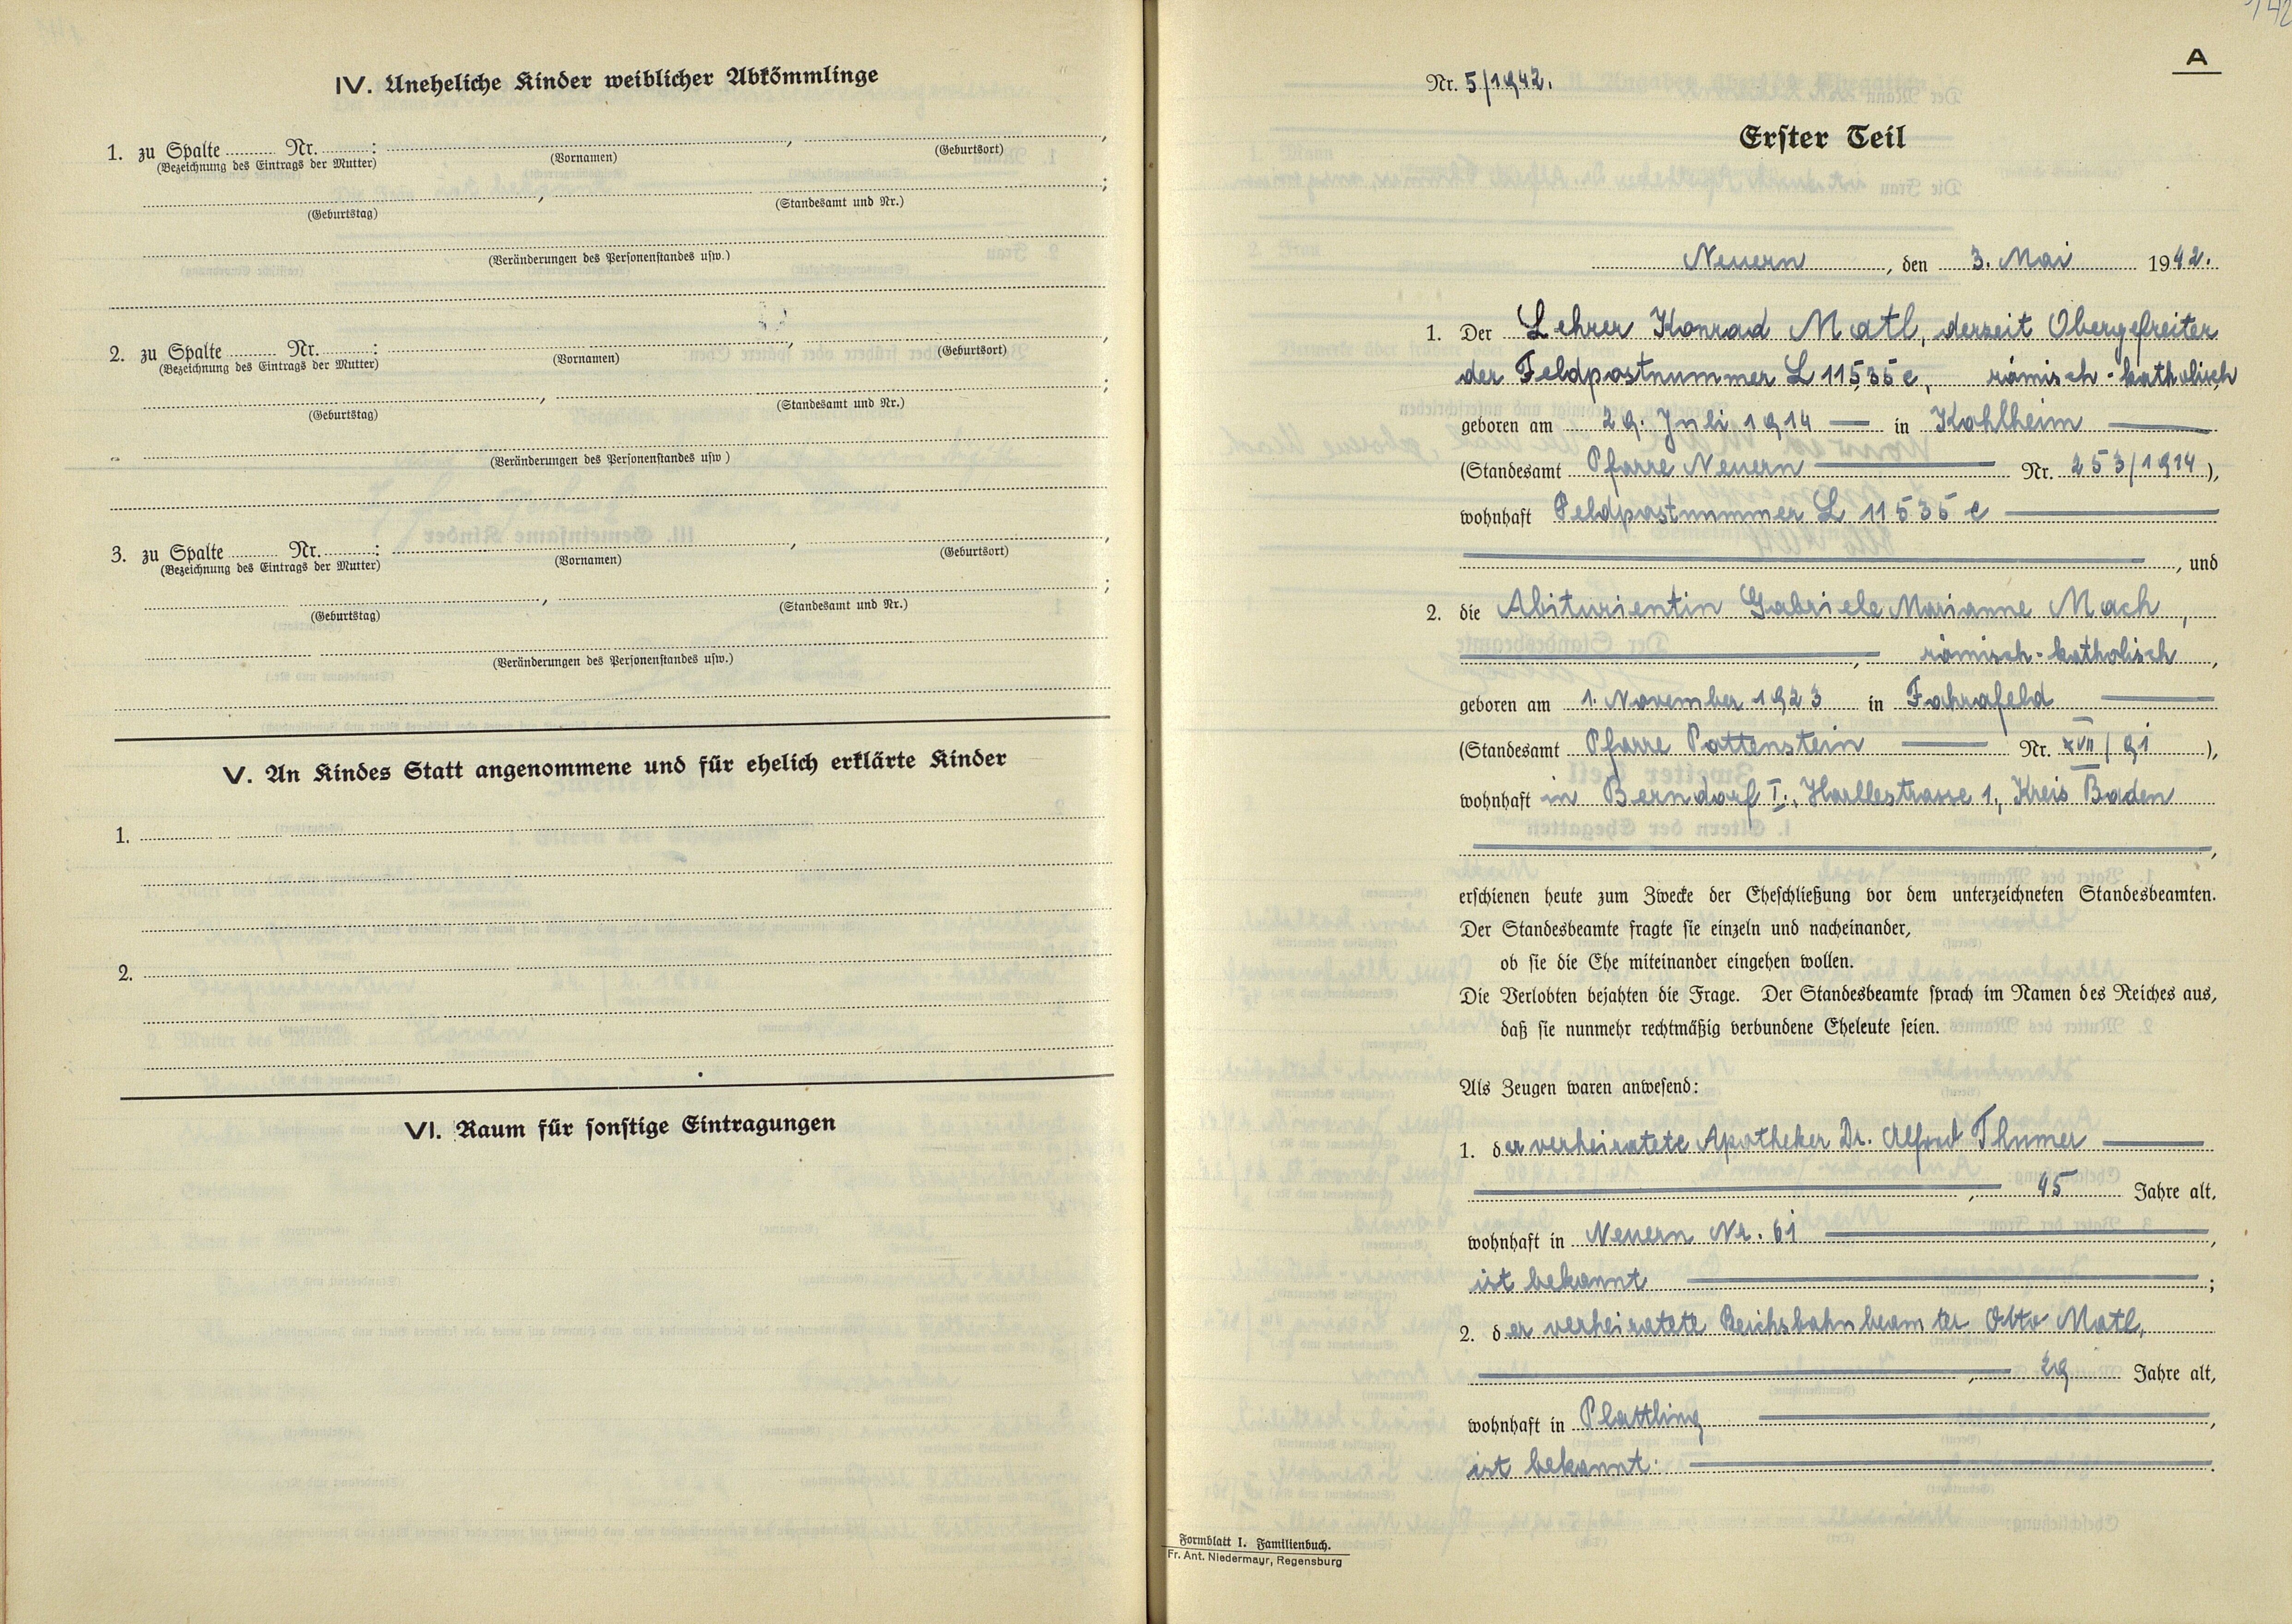 IV. Uneheliche Kinder weiblicher Abkömmlinge
1. zu Spalte ........ Nr. ........: ........, ........,
(Bezeichnung des Eintrags der Mutter) (Vornamen) (Geburtsort)
........, ........;
(Geburtstag) (Standesamt und Nr.)
(Veränderungen des Personenstandes usw.)
2. zu Spalte ........ Nr. ........: ........, ........,
(Bezeichnung des Eintrags der Mutter) (Vornamen) (Geburtsort)
........, ........;
(Geburtstag) (Standesamt und Nr.)
(Veränderungen des Personenstandes usw)
3. zu Spalte ........ Nr. ........: ........, ........,
(Bezeichnung des Eintrags der Mutter) (Vornamen) (Geburtsort)
........, ........;
(Geburtstag) (Standesamt und Nr.)
(Veränderungen des Personenstandes usw.)
V. An Kindes Statt angenommene und für ehelich erklärte Kinder
1.
2.
VI. Raum für sonstige Eintragungen
142
A
Nr. 5/1942.
Erster Teil
Neuern, den 3. Mai 1942.
1. Der Lehrer Konrad Matl, derzeit Obergefreiter
der Feldpostnummer L 11535 c, römisch-katholisch
geboren am 29. Juli 1914 — in Kohlheim —
(Standesamt Pfarre Neuern — Nr. 253/1914),
wohnhaft Feldpostnummer L 11535 c —
, und
2. die Abiturientin Gabriele Marianne Mach,
, römisch-katholisch,
geboren am 1. November 1923 in Fahrafeld —
(Standesamt Pfarre Pottenstein — Nr. XVII/91),
wohnhaft in Berndorf I., Harllestrasse 1, Kreis Baden
,
erschienen heute zum Zwecke der Eheschließung vor dem unterzeichneten Standesbeamten.
Der Standesbeamte fragte sie einzeln und nacheinander,
ob sie die Ehe miteinander eingehen wollen.
Die Verlobten bejahten die Frage. Der Standesbeamte sprach im Namen des Reiches aus,
daß sie nunmehr rechtmäßig verbundene Eheleute seien.
Als Zeugen waren anwesend:
1. der verheiratete Apotheker Dr. Alfred Thumer —
, 45 Jahre alt,
wohnhaft in Neuern Nr. 61 —,
ist bekannt —;
2. der verheiratete Reichsbahnbeamter Otto Matl,
, 29 Jahre alt,
wohnhaft in Plattling —,
ist bekannt. —.
Formblatt I. Familienbuch.
Fr. Ant. Niedermayr, Regensburg